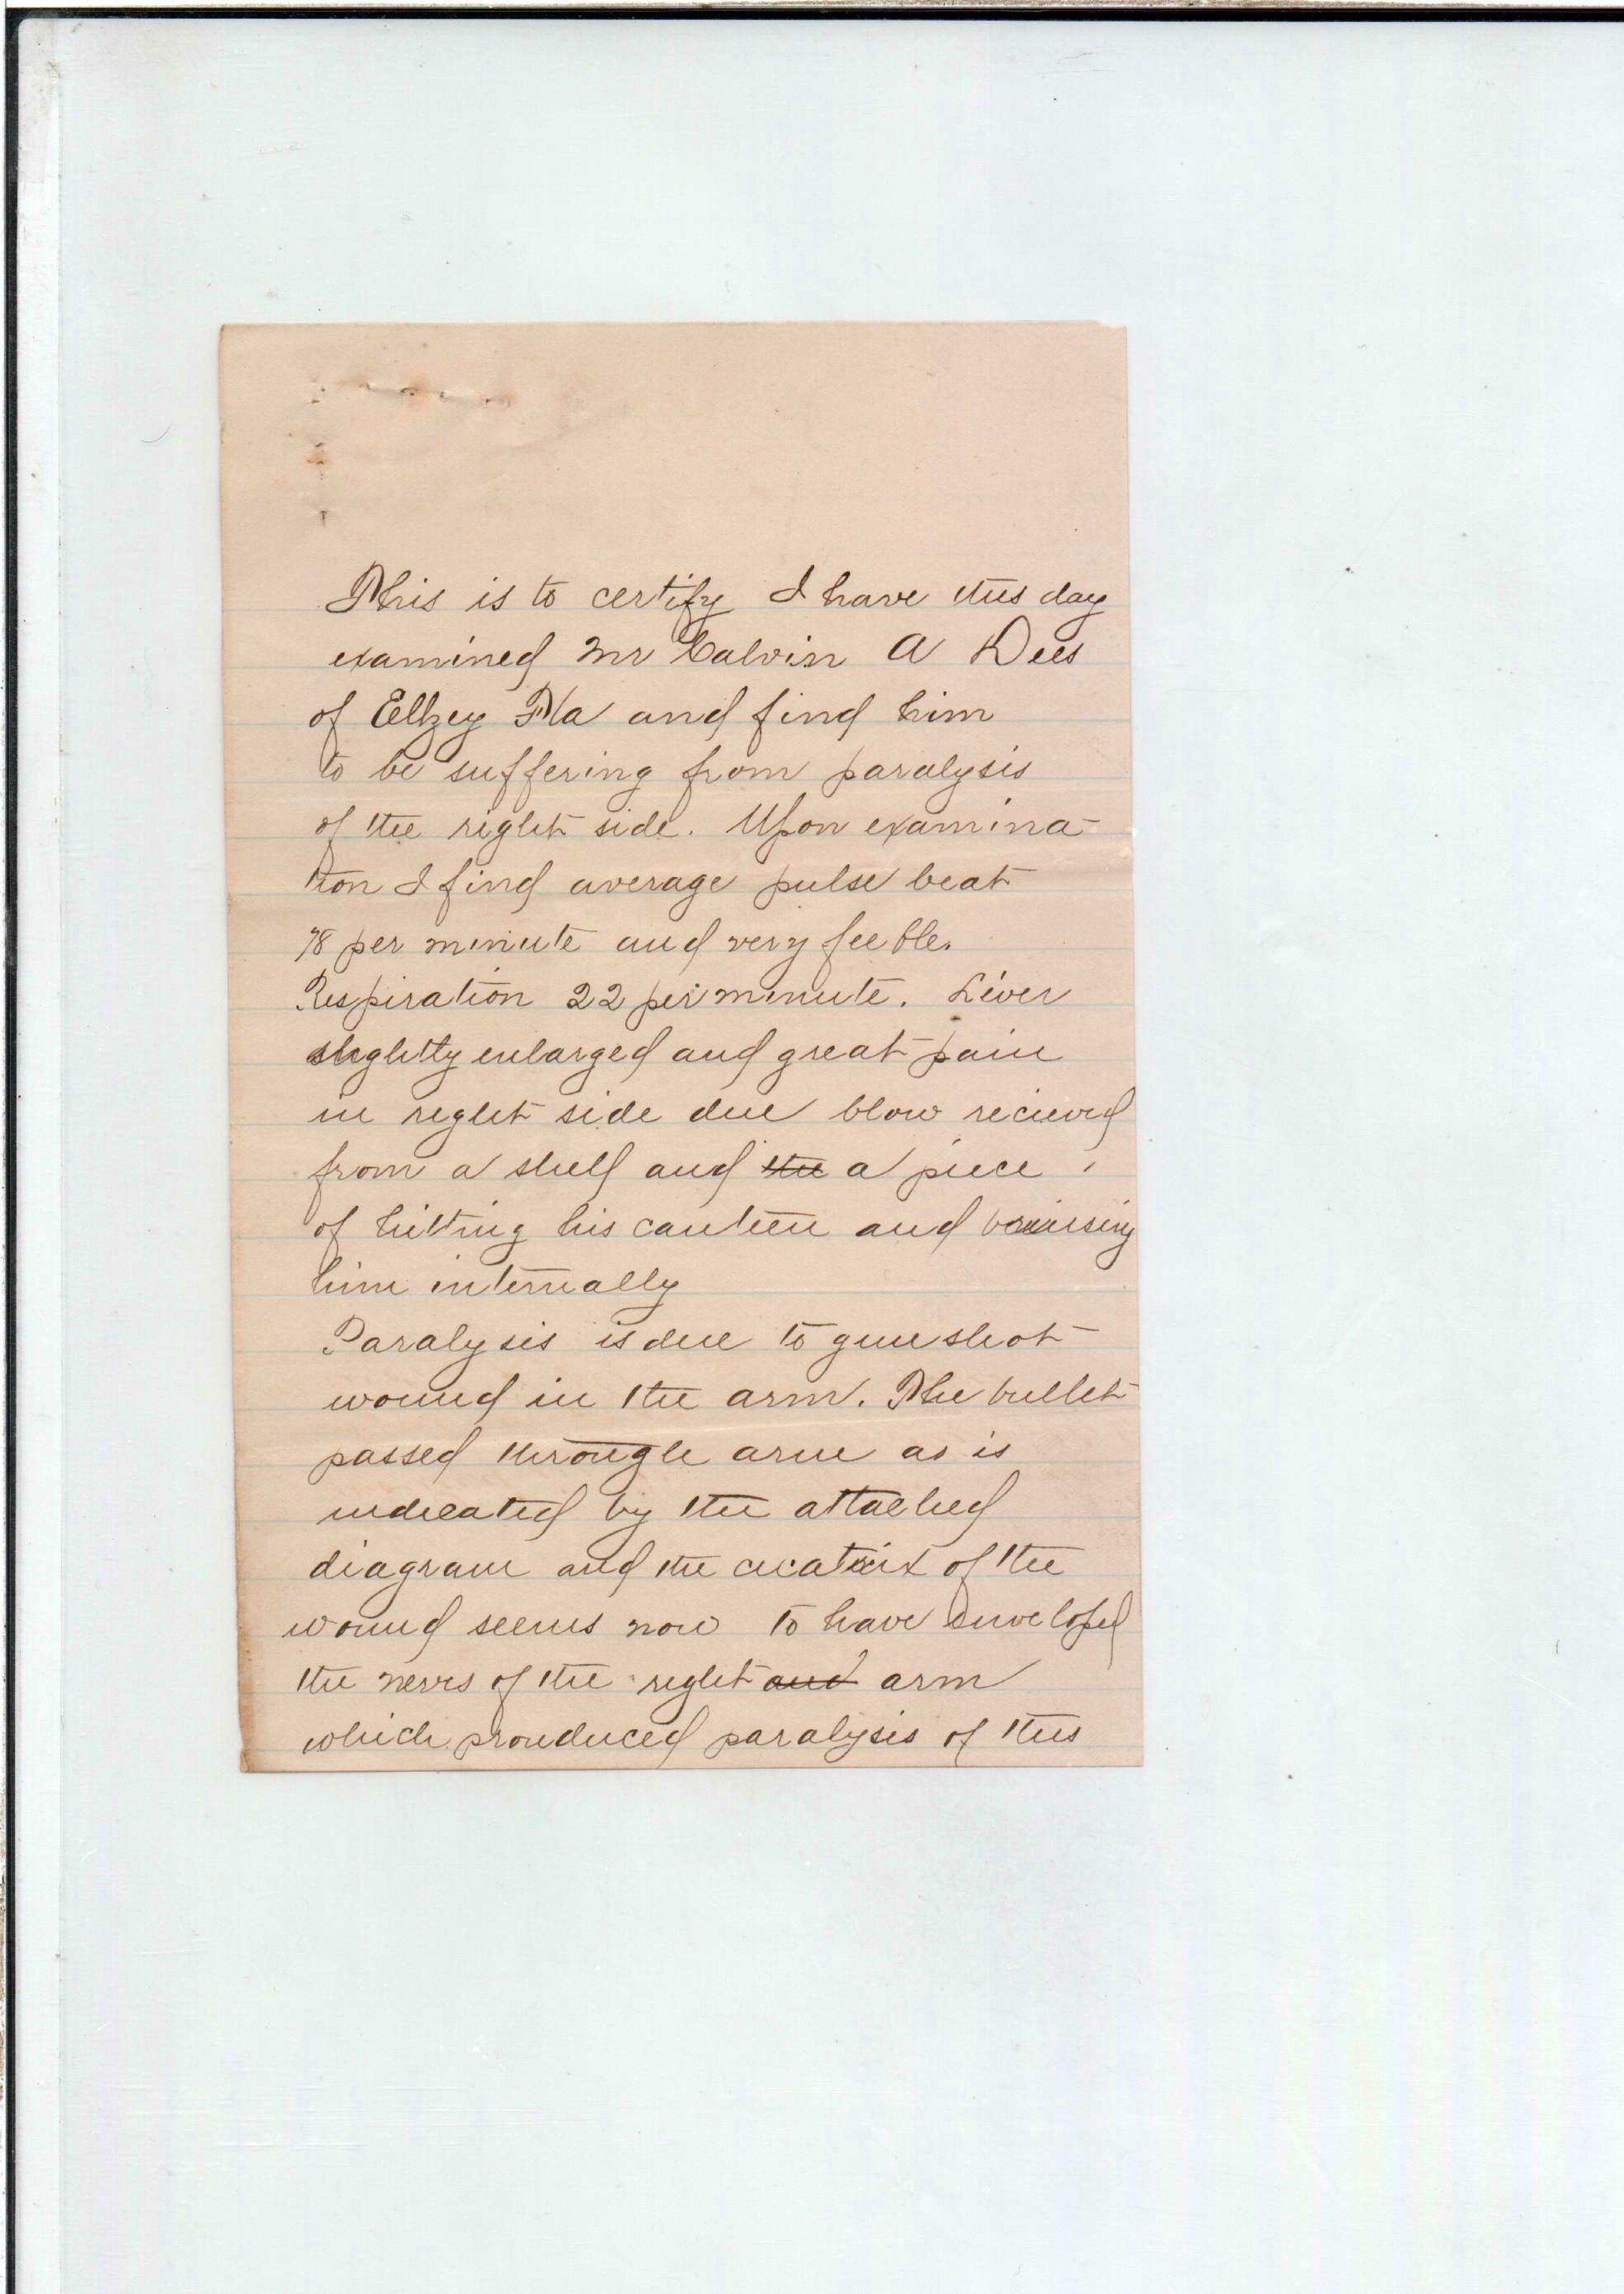 This is to certify I have this day
examined Mr Calvin A Dees
of Ellzey Fla and find him
to be suffering from paralysis
of the right side. Upon examina-
tion I find average pulse beat
78 per minute and very feeble.
Respiration 22 per minute. Liver
slightly enlarged and great pain
in right side due blow recieved
from a shell and the a piece
of hitting his canteen and bruising
him internally
Paralysis is due to gun shot
wound in the arm. The bullet
passed through arm as is
indicated by the attached
diagram and the cicatrix of the
wound seems now to have enveloped
the nervs of the right and arm
which prouduced paralysis of this